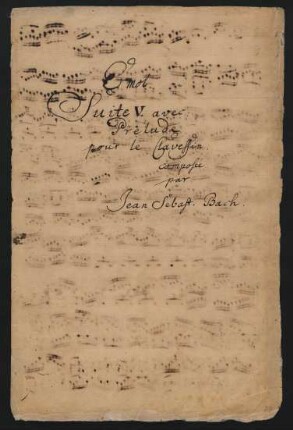 E mol
Suite V. avec
Prelude
pour le Clavessin
composée
par
Jean Sebast. Bach.